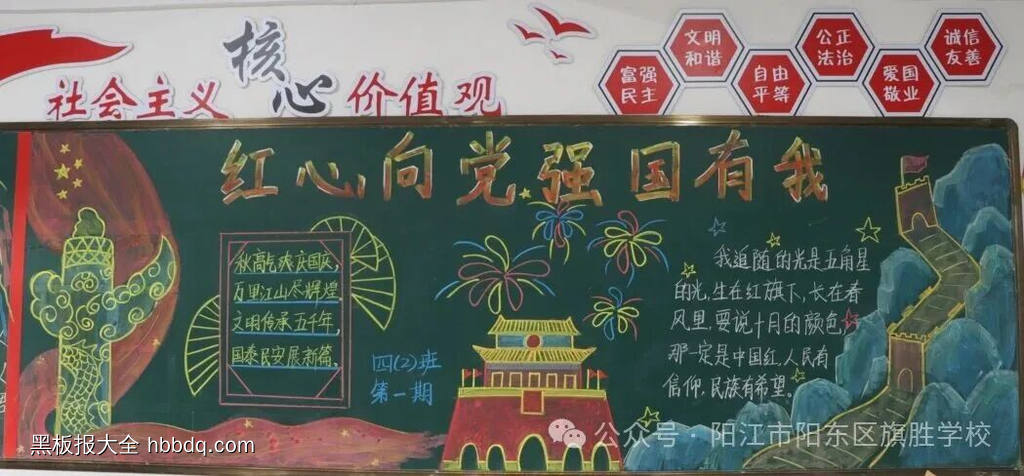 社会主义核心价值观
富强
民主
文明
和谐
自由
平等
公正
法治
爱国
敬业
诚信
友善
红心向党强国有我
秋高气爽庆国庆,
万里江山尽辉煌。
文明传承五千年,
国泰民安展新篇。
四(2)班
第一期
我追随的光是五角星
的光,生在红旗下,长在春
风里,要说十月的颜色,
那一定是中国红,人民有
信仰,民族有希望。
黑板报大全 hbbdq.com
公众号·阳江市阳东区旗胜学校